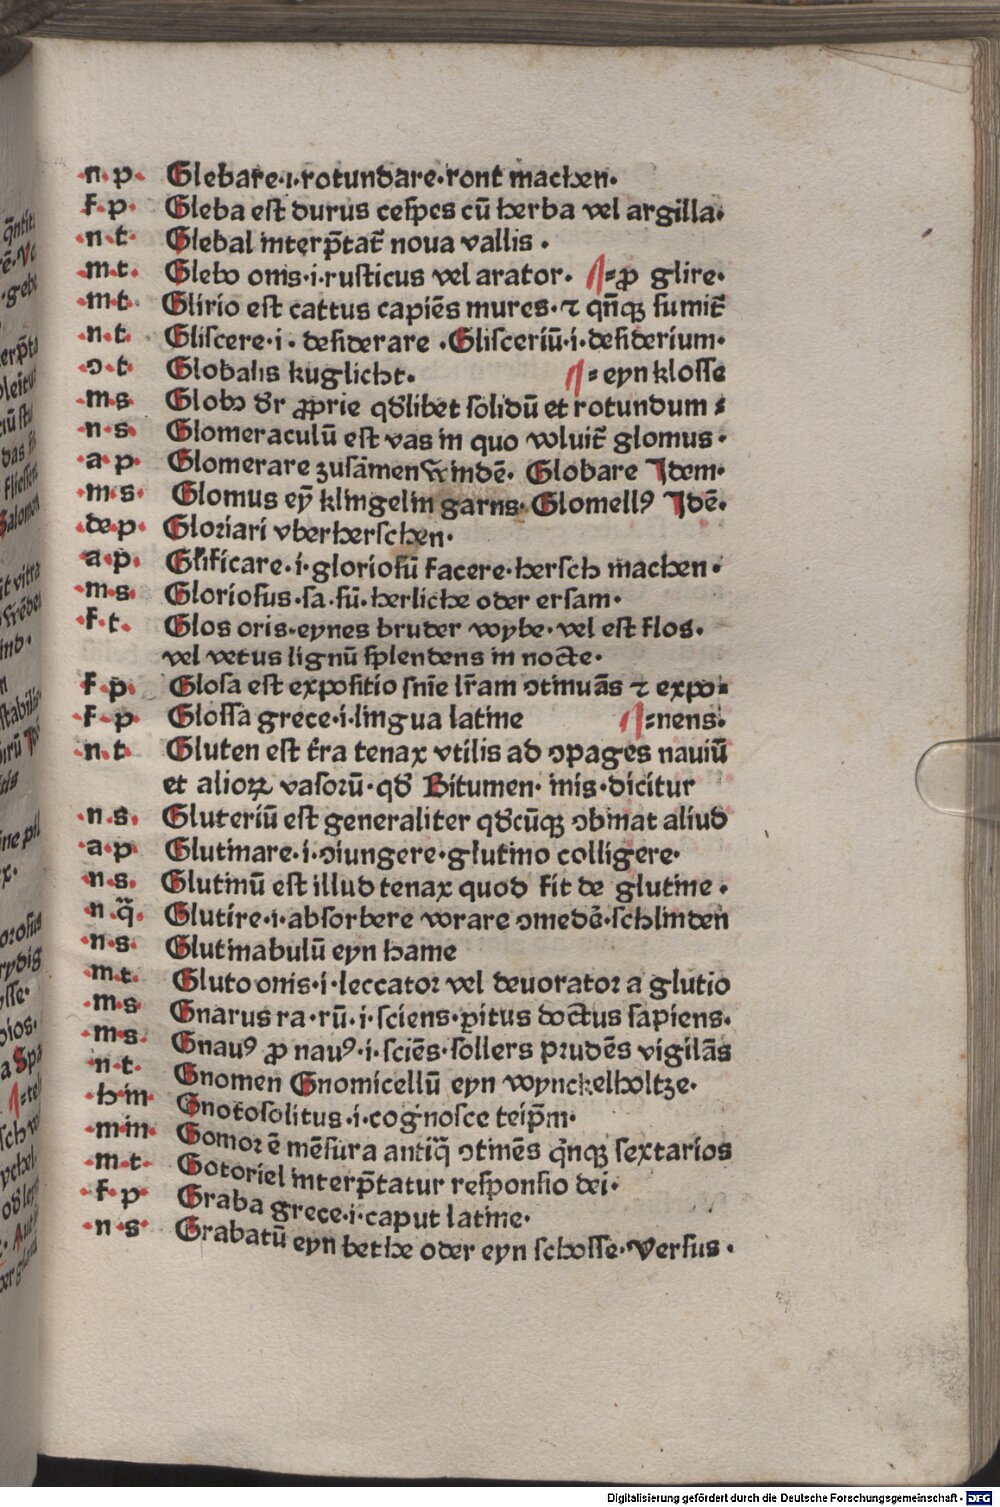 ·n·p· Glebare·i·rotundare·ront machen·
·f·p· Gleba est durus cespes cū herba vel argilla·
·n·t· Glebal interp̄tat̄ noua vallis·
·m·t· Glebo onis·i·rusticus vel arator· ⸗ꝓ glire·
·m·t· Glirio est cattus capiēs mures·⁊ qn̄qꝫ sumit̄
·n·t· Gliscere·i·desiderare·Glisceriū·i·desiderium·
·ↄ·t· Globalis kuglicht· ⸗eyn klosse
·m·s Globꝰ dr̄ ꝓprie qđlibet solidū et rotundum⸗
·n·s· Glomeraculū est vas in quo voluit̄ glomus·
·a·p· Glomerare zusāmen windē· Globare Idem·
·m·s· Glomus eȳ klingelin garns·Glomellꝰ Idē·
·de·p· Gloriari vberherschen·
·a·p· Gl̄ificare·i·gloriosū facere·hersch machen·
·m·s· Gloriosus·sa·sū·herliche oder ersam·
·f·t· Glos oris·eynes bruder wybe·vel est flos·
vel vetus lignū splendens in nocte·
·f·p· Glosa est expositio snīe lr̄am ↄtinuās ⁊ expo⸗
·f·p· Glossa grece·i·lingua latine ⸗nens·
·n·t· Gluten est t̄ra tenax vtilis ad ↄpages nauiū
et alioꝝ vasorū·qđ Bitumen·inis·dicitur
·n·s· Gluteriū est generaliter qđcūqꝫ ↄbinat aliud
·a·p· Glutinare·i·ↄiungere·glutino colligere·
·n·s· Glutinū est illud tenax quod fit de glutine·
·n·q̄· Glutire·i·absorbere vorare ↄmedē·schlinden
·n·s· Glutinabulū eyn hame
·m·t· Gluto onis·i·leccator vel deuorator a glutio
·m·s Gnarus ra·rū·i·sciens·ꝑitus doctus sapiens·
·m·s· Gnauꝰ ꝓ nauꝰ·i·sciēs·sollers prudēs vigilās
·n·t· Gnomen Gnomicellū eyn wynckelholtze·
·h·in· Gnotosolitus·i·cognosce teip̄m·
·m·in· Gomor ē mēsura antiq̄ ↄtinēs q̇nqꝫ sextarios
·m·t· Gotoriel interp̄tatur responsio dei·
·f·p· Graba grece·i·caput latine·
·n·s· Grabatū eyn bethe oder eyn schosse·Versus·
Digitalisierung gefördert durch die Deutsche Forschungsgemeinschaft - DFG